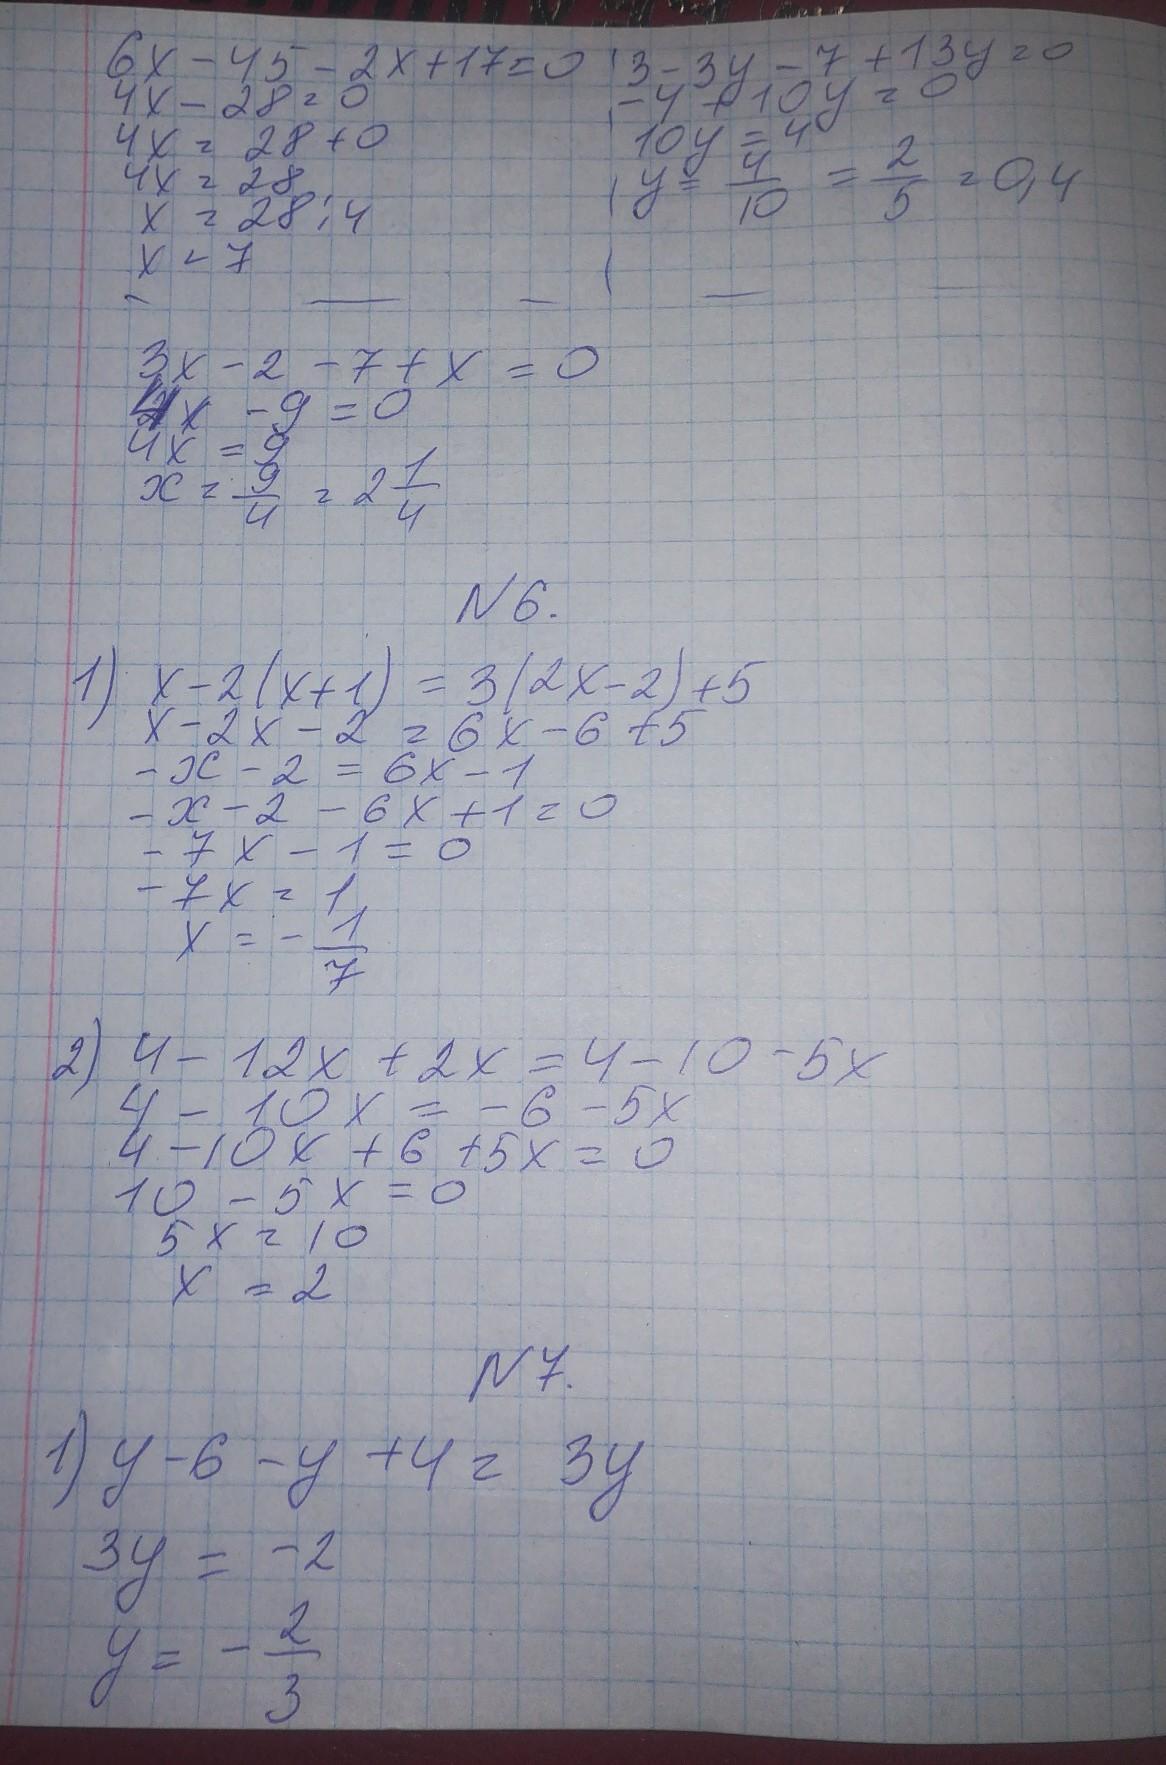 6x - 45 - 2x + 17 = 0
4x - 28 = 0
4x = 28 + 0
4x = 28
x = 28 : 4
x = 7
3 - 3y - 7 + 13y = 0
-4 + 10y = 0
10y = 4
y = 4/10 = 2/5 = 0,4
3x - 2 - 7 + x = 0
4x - 9 = 0
4x = 9
x = 9/4 = 2 1/4
N6.
1) x - 2(x+1) = 3(2x-2)+5
x - 2x - 2 = 6x - 6 + 5
-x - 2 = 6x - 1
-x - 2 - 6x + 1 = 0
-7x - 1 = 0
-7x = 1
x = -1/7
2) 4 - 12x + 2x = 4 - 10 - 5x
4 - 10x = -6 - 5x
4 - 10x + 6 + 5x = 0
10 - 5x = 0
5x = 10
x = 2
N7.
1) y - 6 - y + 4 = 3y
3y = -2
y = -2/3